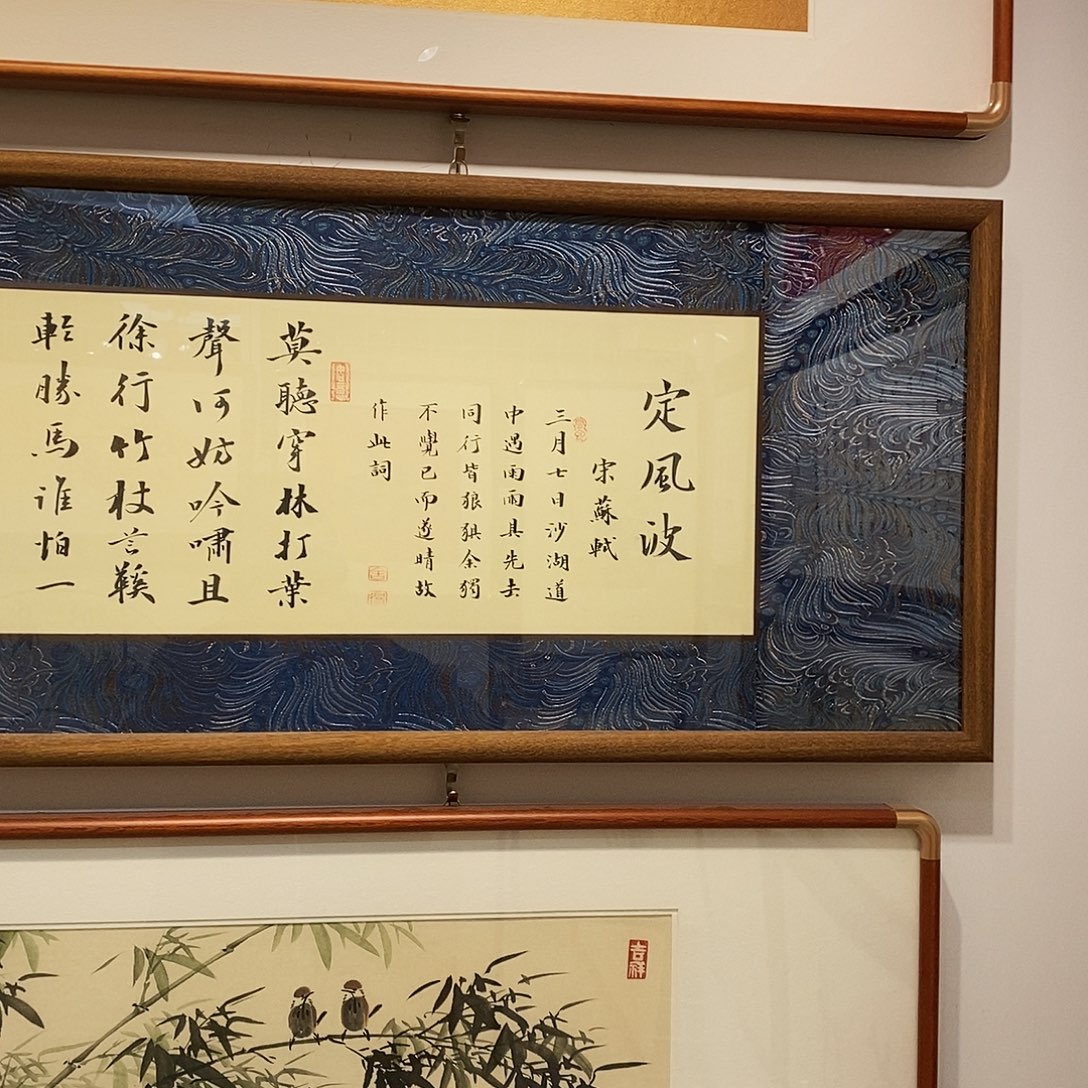 定風波
宋蘇軾
三月七日沙湖道
中遇雨雨具先去
同行皆狼狽余獨
不覺已而遂晴故
作此詞
莫聽穿林打葉
聲何妨吟嘯且
徐行竹杖芒鞵
輕勝馬誰怕一
吉祥